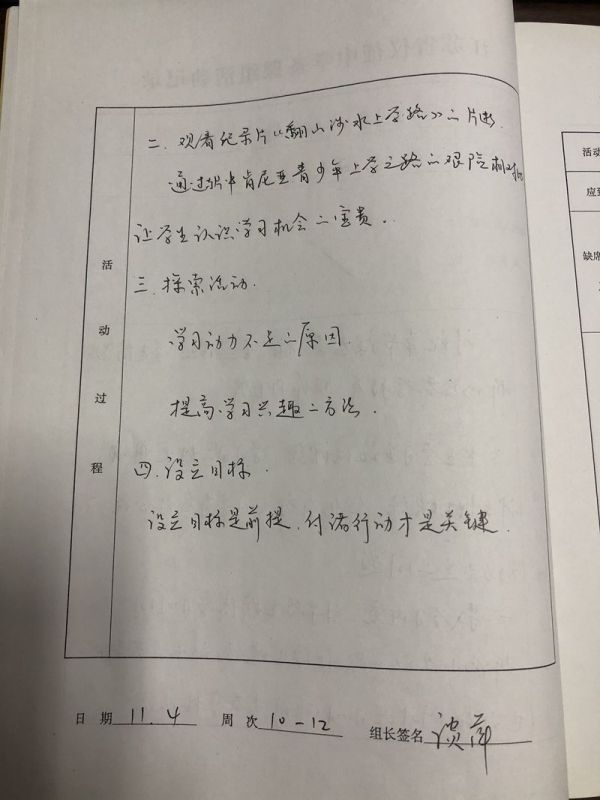 二、观看纪录片《翻山涉水上学路》二片断.
通过片中肯尼亚青少年上学之路二艰险
让学生认识学习机会二宝贵.
三.探索活动.
学习动力不足二原因.
提高学习兴趣二方法.
四.设立目标.
设立目标是前提.付诸行动才是关键.
活动过程
日 期 11.4 周 次 10-12 组长签名
活动
应到
缺席